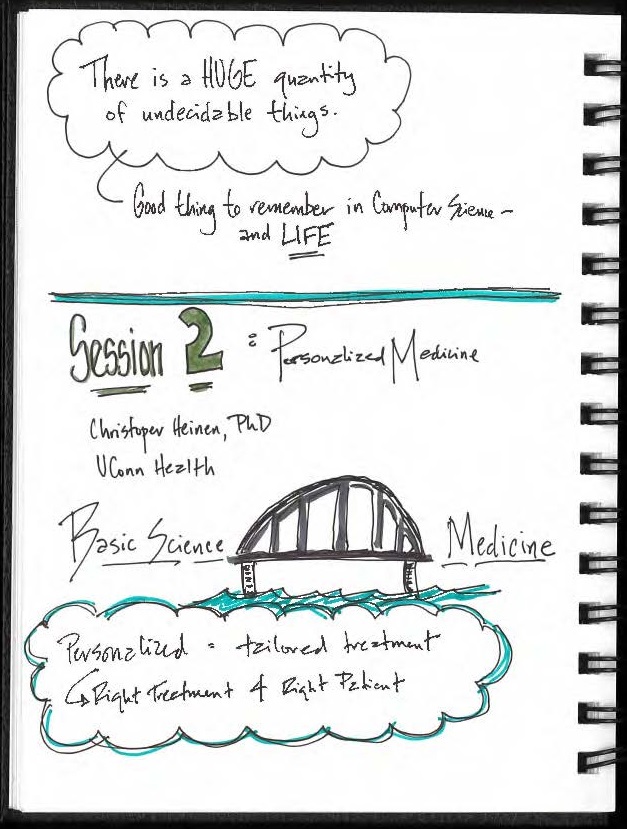 There is a HUGE quantity
of undecidable things.
Good thing to remember in Computer Science -
and LIFE
Session 2 : Personalized Medicine
Christoper Heinen, PhD
UConn Health
Basic Science Medicine
Personalized = tailored treatment
↳ Right Treatment 4 Right Patient